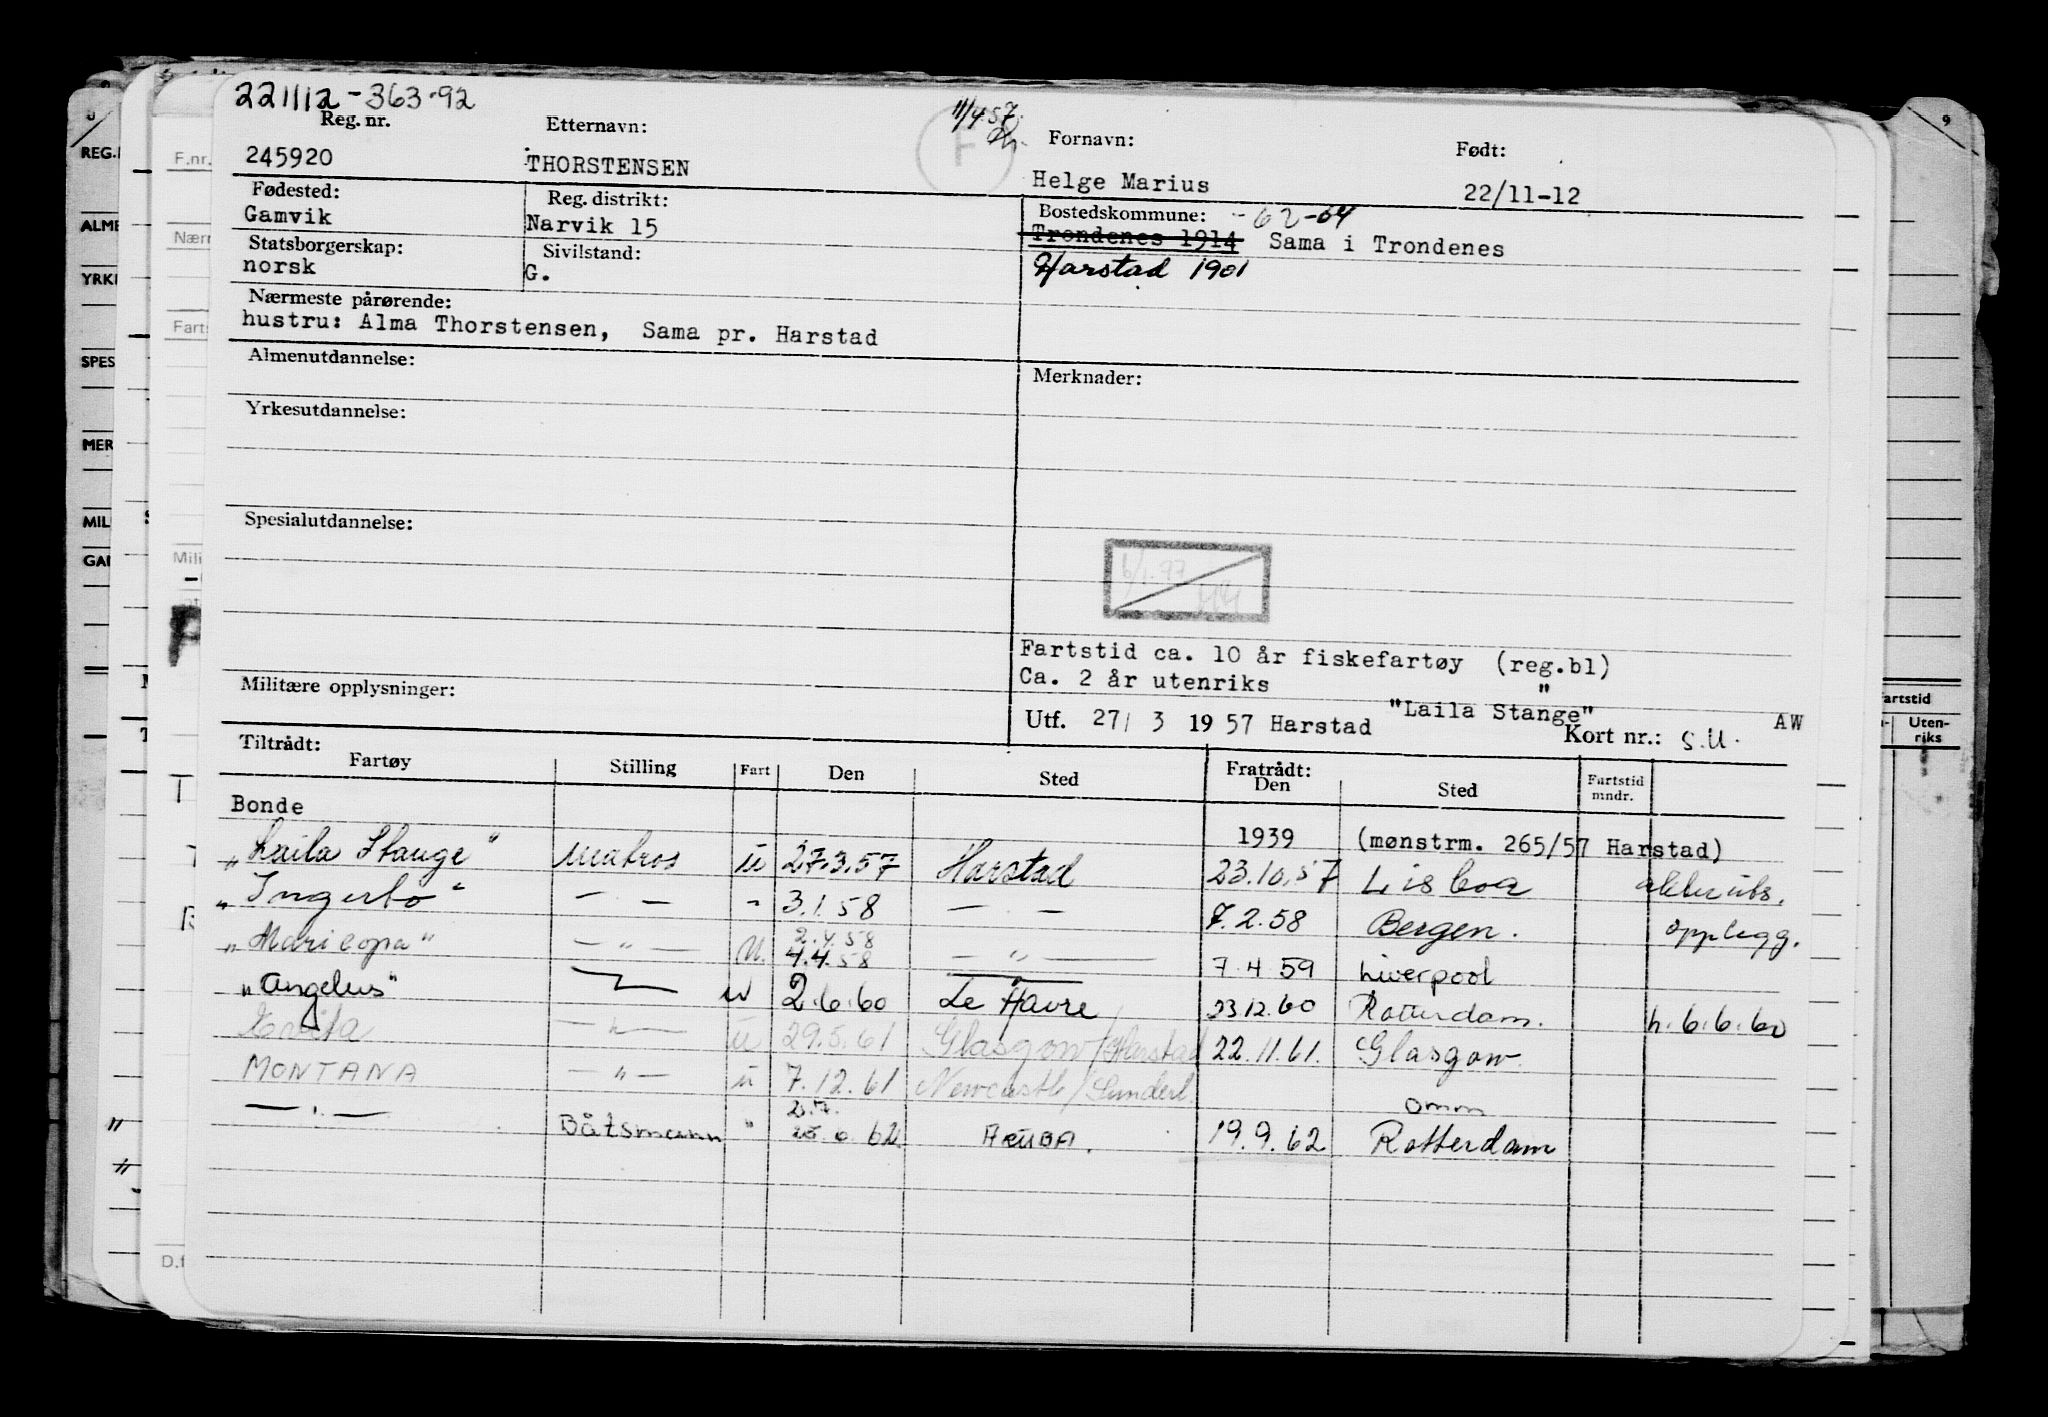 221112-363-92
Reg. nr. Etternavn: 11/4.57. Fornavn: Født:
245920 THORSTENSEN F Helge Marius 22/11-12
Fødested: Reg. distrikt: Bostedskommune: -62-64
Gamvik Narvik 15 Trondenes 1914 Sama i Trondenes
Statsborgerskap: Sivilstand:
norsk G. Harstad 1901
Nærmeste pårørende:
hustru: Alma Thorstensen, Sama pr. Harstad
Almenutdannelse: Merknader:
Yrkesutdannelse:
Spesialutdannelse:
Fartstid ca. 10 år fiskefartøy (reg.bl)
Ca. 2 år utenriks "
Militære opplysninger:
"Laila Stange" AW
Utf. 27/ 3 1957 Harstad Kort nr.: S.U.
Tiltrådt: Fratrådt:
Fartøy Stilling Fart Den Sted Den Sted Fartstid mndr.
Bonde 1939 (mønstrm. 265/57 Harstad)
"Laila Stange" Matros u 27.3.57 Harstad 23.10.57 Lisboa
"Ingerbo" — — - 3.1.58 — . — 7.2.58 Bergen. opplegg.
2.4.58
"Maricopa" — " — U. 4.4.58 — " — 7.4.59 Liverpool
"Angelus" — u 2.6.60 Le Havre 23.12.60 Rotterdam. h. 6.6.60
— " — u 29.5.61 Glasgow/Harstad 22.11.61. Glasgow.
MONTANA — " — u 7.12.61 Newcastle/Sunderl.
omm
— " — Båtsmann " 62 ARUBA. 19.9.62 Rotterdam
F.nr.
Nærm
Farts
Mili
D.f
REG.
ALME
YRKE
SPES
MER
MIL
GAR
9
artstid
Uten-
riks